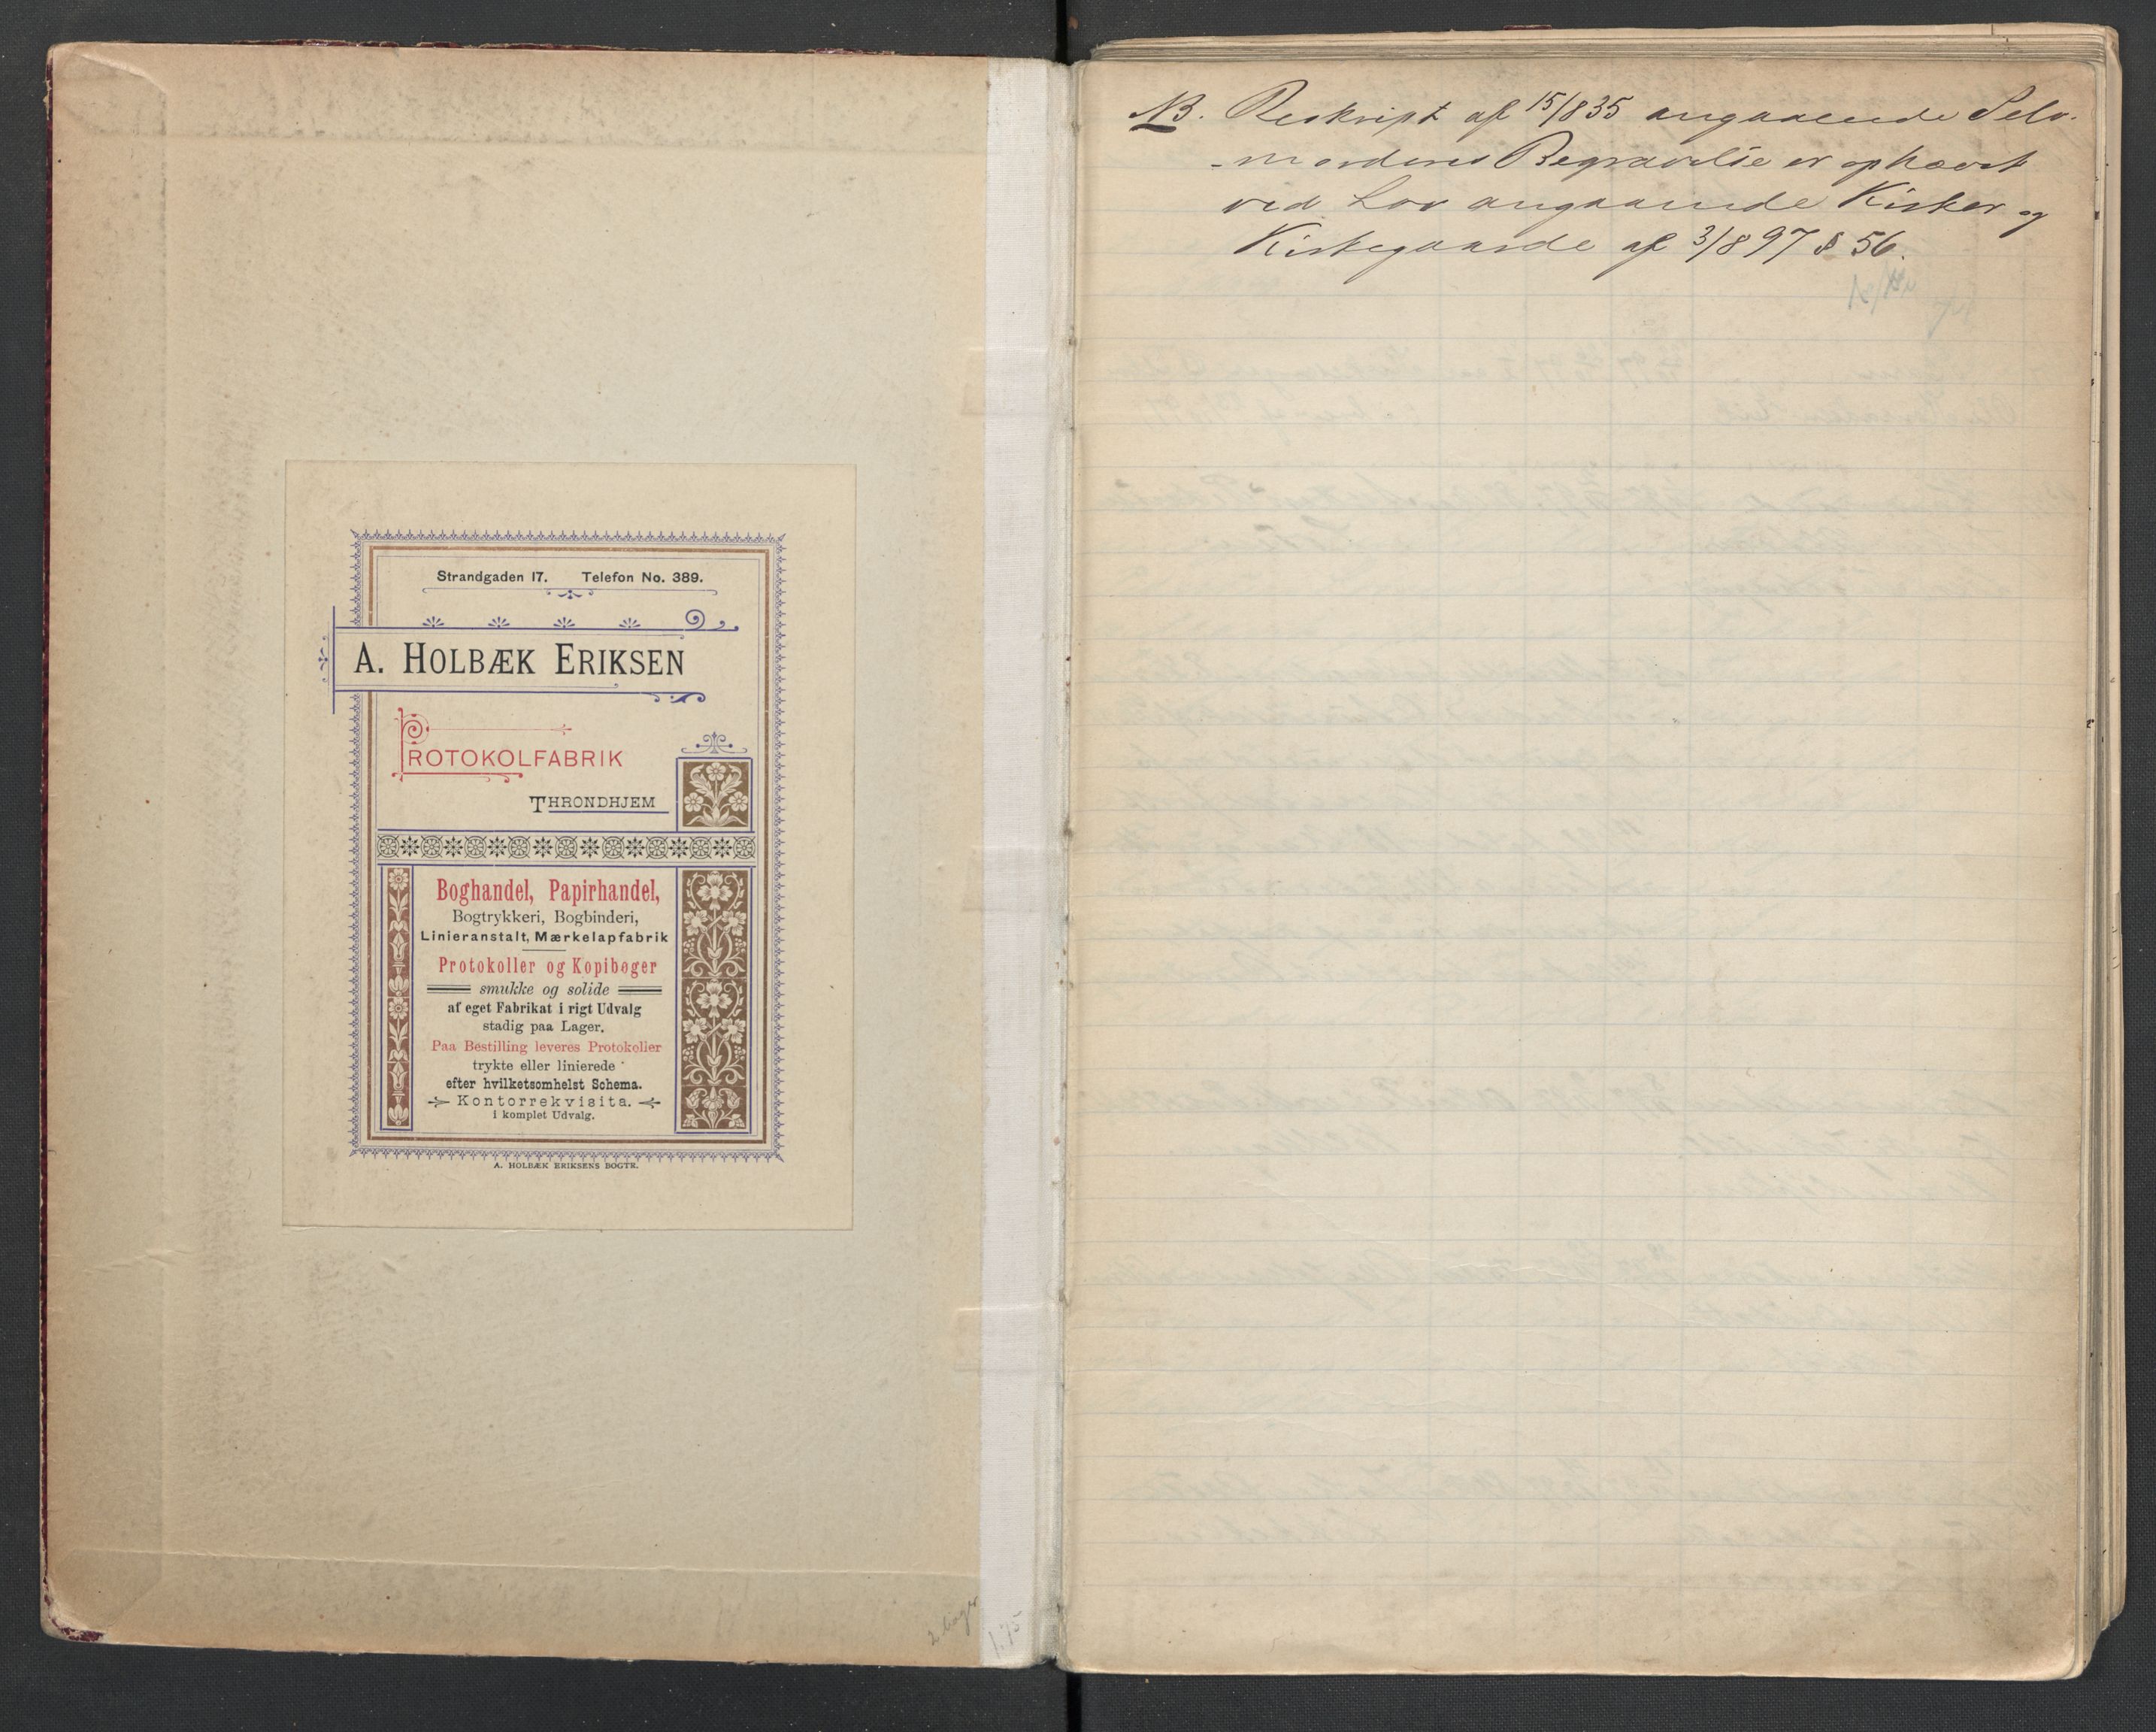 Strandgaden 17. Telefon No. 389.
A. HOLBÆK ERIKSEN
PROTOKOLFABRIK
THRONDHJEM
Boghandel, Papirhandel,
Bogtrykkeri, Bogbinderi,
Linieranstalt, Mærkelapfabrik
Protokoller og Kopibøger
smukke og solide
af eget Fabrikat i rigt Udvalg
stadig paa Lager.
Paa Bestilling leveres Protokoller
trykte eller linierede
efter hvilketsomhelst Schema.
Kontorrekvisita.
i komplet Udvalg.
A. HOLBÆK ERIKSENS BOGTR.
2 bøger
1.75
NB. Reskript af 15/835 angaaende Selv-
-morderes Begravelse er ophævet
ved Lov angaaende Kirker og
Kirkegaarde af 3/897 § 56.